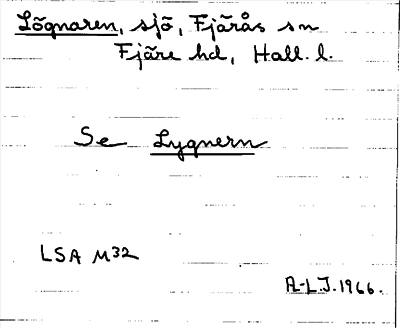 Lögnaren, sjö, Fjärås sn
Fjäre hd, Hall. l.
Se Lygnern
LSA M32
A-LJ. 1966.